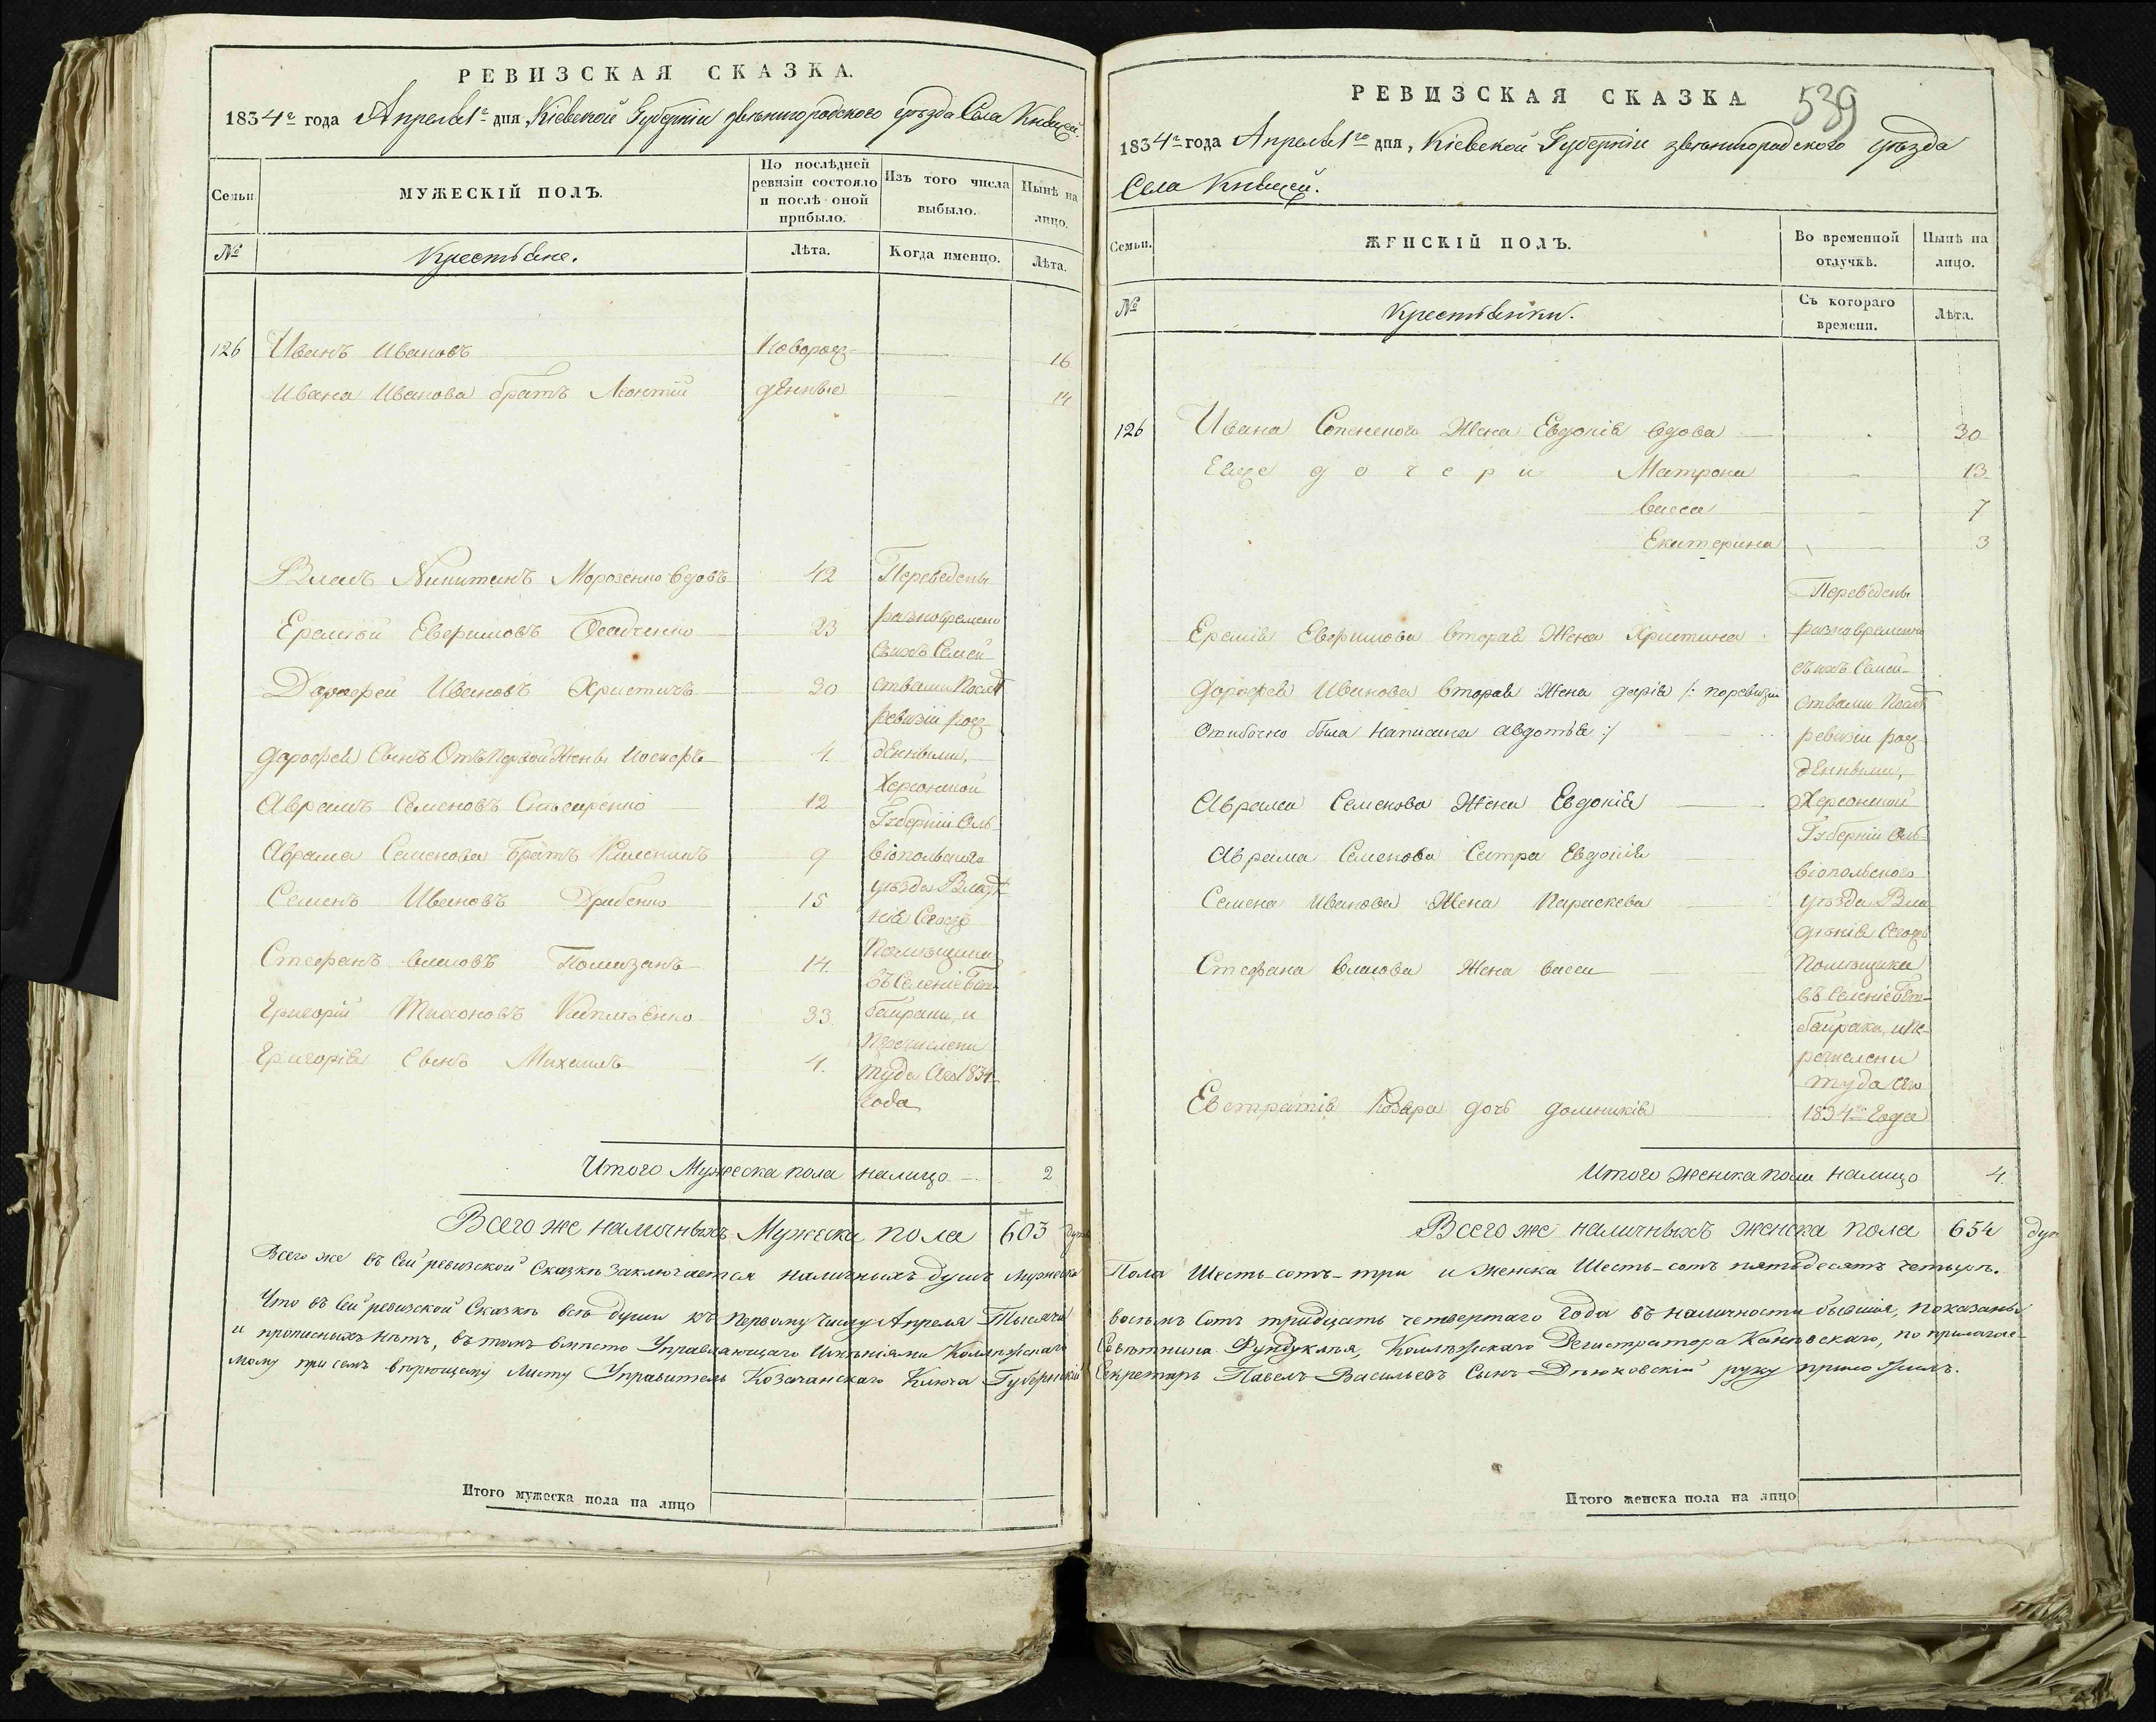 РЕВИЗСКАЯ СКАЗКА.
1834го года Апреля 1го дня, Кіевской Губерніи звенигородского уѣзда Села
Семьи.
МУЖЕСКІЙ ПОЛЪ.
По послѣдней ревизіи состояло и послѣ оной прибыло.
Изъ того числа выбыло.
Нынѣ на лицо.
№
Крестьяне.
Лѣта.
Когда именно.
Лѣта.
126 Иванъ Ивановъ Новорож- 16
Ивана Иванова братъ Леонтій денные 14
Власъ Никитинъ Морозенко вдовъ 42
Еремѣй Евфимовъ Осадченко 23
Дорофей Ивановъ 30
Дорофея Сынъ Отъ Первой Жены Іосифъ 4.
Аврамъ Семеновъ 12
Аврама Семенова Братъ 9
Семенъ Ивановъ Дрибенко 15
Стефанъ власовъ Помазанъ 14.
Григорій 33.
Григорія Сынъ Михаилъ 4.
Переведены
разновременно
съ ихъ Семей-
ствами Послѣ
ревизіи рож-
денными,
Херсонской
Губерніи Оль-
віопольского
уѣзда Владѣ-
нія Сегожъ
Помѣщика
въ Селеніе
байраки, и
Перечислени
туда Сего 1834
года
Итого Мужеска пола налицо 2
Всего же наличныхъ Мужеска пола 603 душ
РЕВИЗСКАЯ СКАЗКА
539
1834го года Апреля 1го дня, Кіевской Губерніи звенигородского уѣзда
Села
Семьи.
ЖЕНСКІЙ ПОЛЪ.
Во временной отлучкѣ.
Нынѣ на лицо.
№
Крестьянки.
Съ котораго времени.
Лѣта.
126 Ивана Жена Евдокія вдова 30
Еще дочери Матрона 13
васса 7
Екатерина 3
Еремія Евфимова вторая Жена Христина
Дорофея Иванова вторая Жена дарія /: поревизіи
Ошибочно была написана авдотья :/
Аврама Семенова Жена Евдокія
Аврама Семенова Сестра Евдокія
Семена Иванова Жена Параскева
Стефана власова Жена васса
Евстратія дочь домникія
Переведены
разновременно
съ ихъ Семей-
ствами Послѣ
ревизіи рож-
денными,
Херсонской
Губерніи Оль-
віопольского
уѣзда Вла-
дѣнія Сегожъ
Помѣщика
въ Селеніе
байраки, и Пе-
речислени
туда Сего
1834го Года
Итого женска пола налицо 4.
Всего же наличныхъ женска пола 654 душ
Всего же въ Сей ревизской Сказкѣ заключается наличныхъ душъ мужеска Пола Шесть-сотъ-три и женска Шесть-сотъ пятьдесятъ четыре.
Что въ Сей ревизской Сказкѣ всѣ души къ Первому Числу Апреля Тысяча восемь Сотъ тридцать четвертаго года въ наличности бывшія, показаны
и прописныхъ нѣтъ, въ томъ вмѣсто Управляющаго Имѣніями Коллежскаго Совѣтника Фундуклея, Коллежскаго Регистратора Каневскаго, по прилагае-
мому при семъ вѣрющему Листу Управитель Козачанскаго Ключа Губернскій Секретарь Павелъ Васильевъ Сынъ руку приложилъ.
Итого мужеска пола на лицо
Итого женска пола на лицо